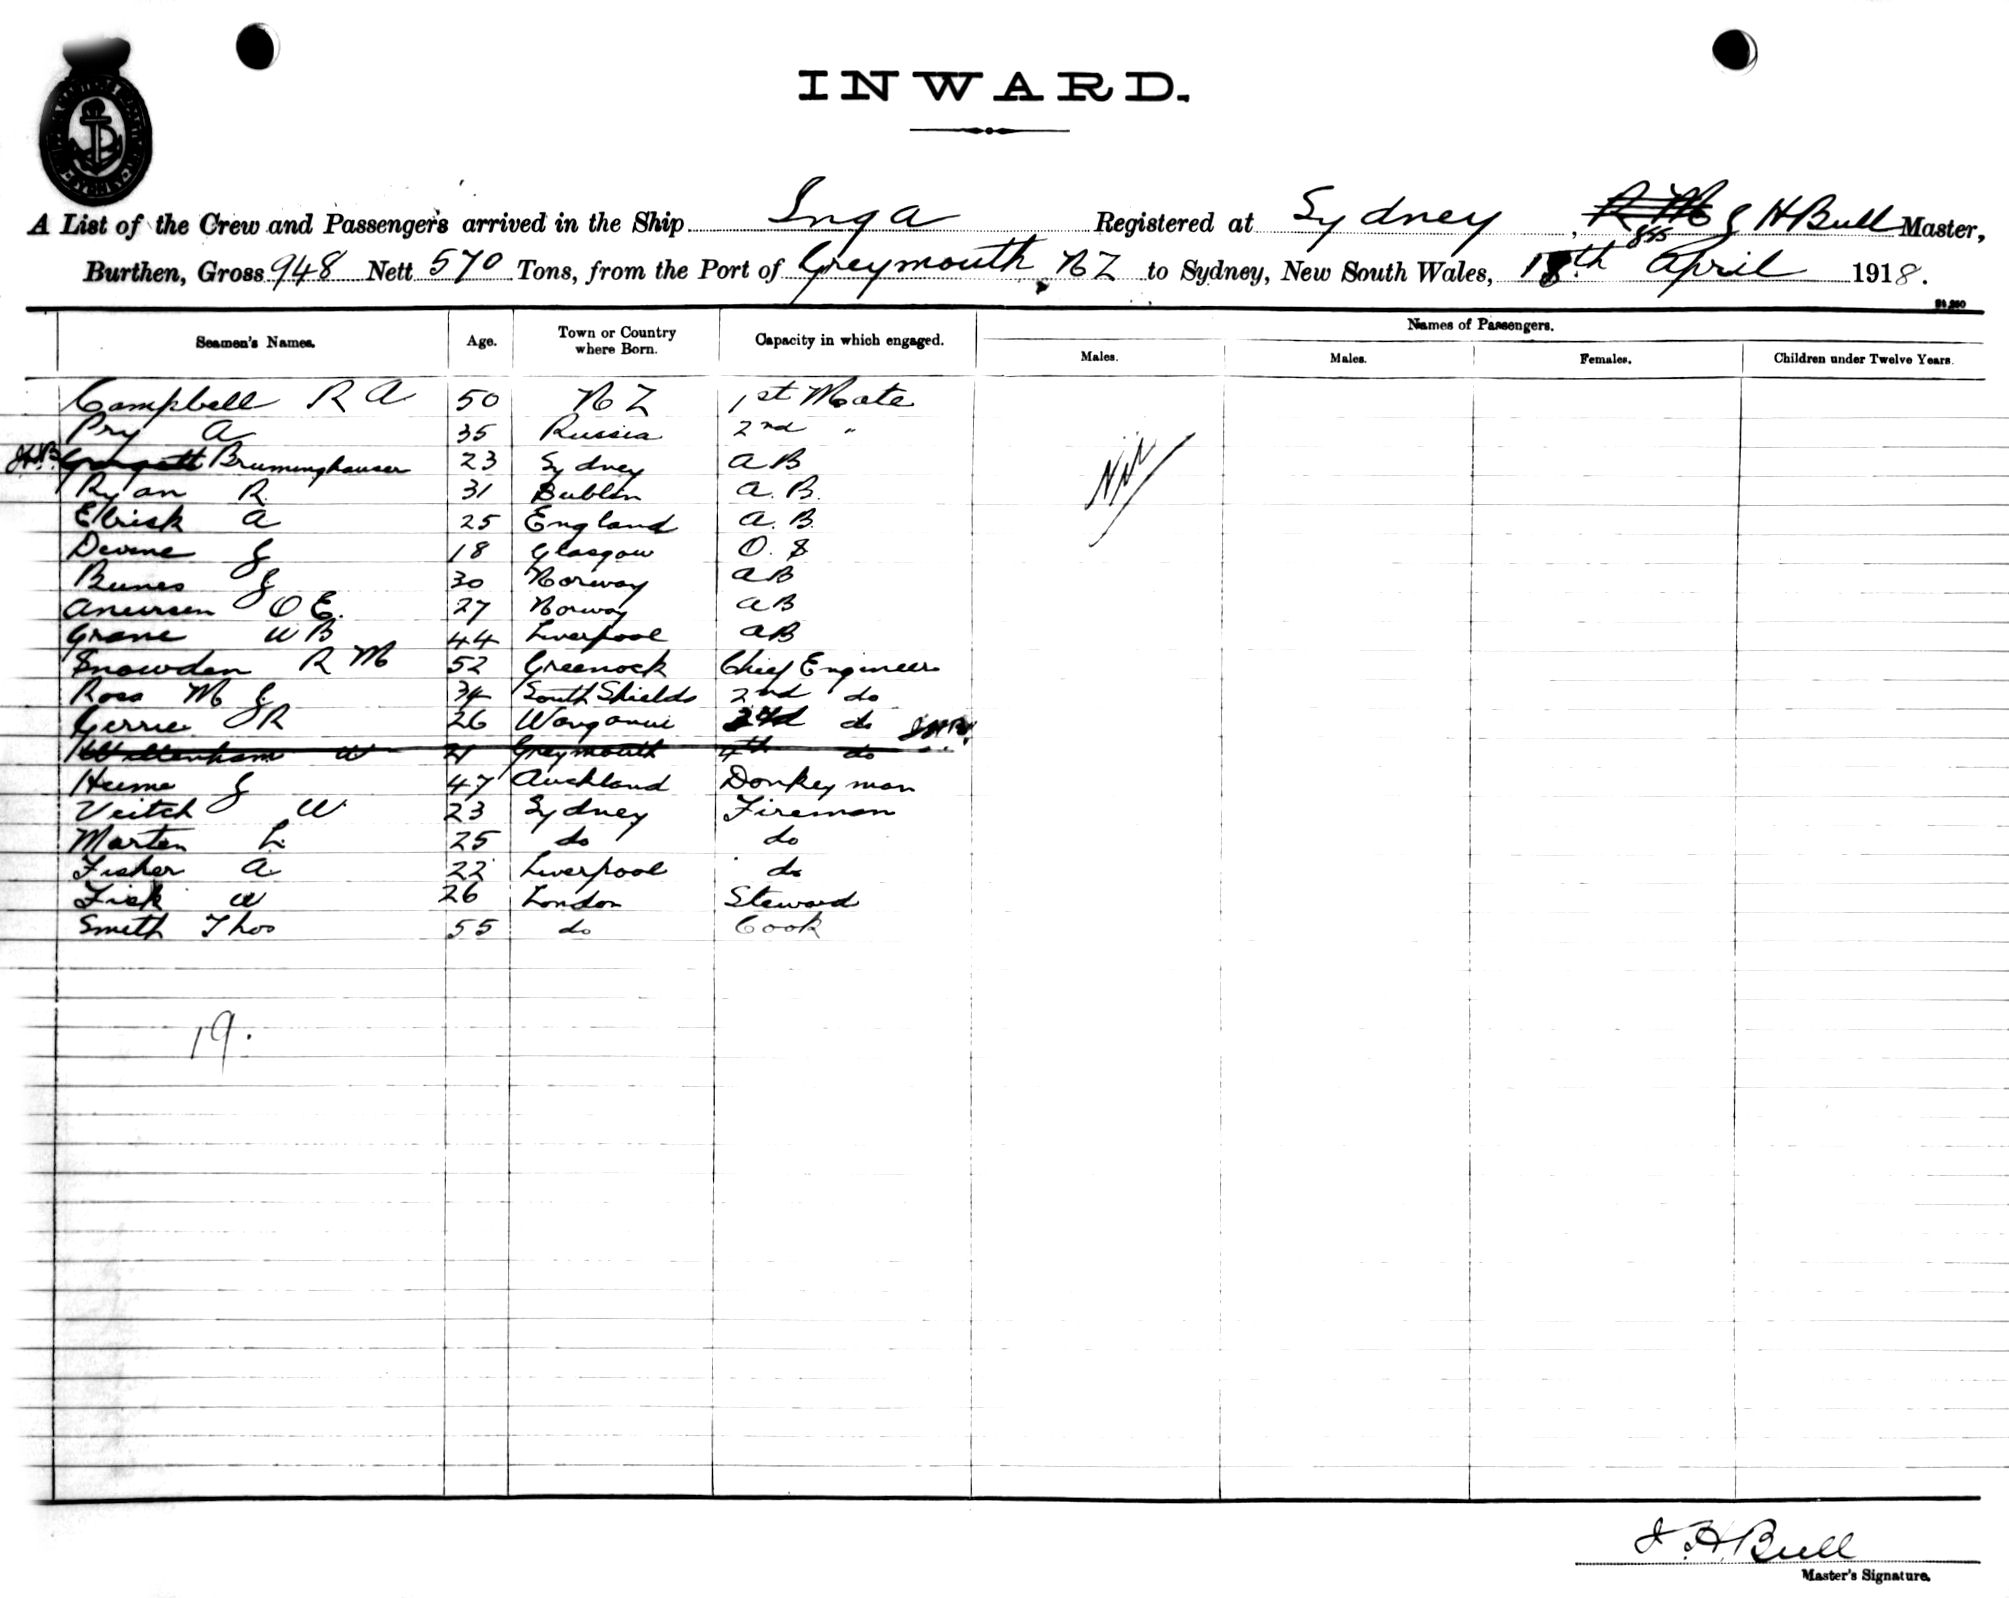 INWARD.
A List of the Crew and Passengers arrived in the Ship Inga Registered at Sydney, R M J H Bull Master,
Burthen, Gross 948 Nett 570 Tons, from the Port of Greymouth NZ to Sydney, New South Wales, 18th April 1918.
Names of Passengers.
Seamen's Names. Age. Town or Country where Born. Capacity in which engaged. Males. Males. Females. Children under Twelve Years.
Campbell R A 50 NZ 1st Mate
Pry A 35 Russia 2nd "
JHB Bruminghauser 23 Sydney AB
Nil
Ryan R 31 Dublin A.B.
Elrick A 25 England A.B.
Devine J 18 Glasgow O.S
Bunes J 30 Norway AB
O E. 27 Norway AB
Grane W B 44 Liverpool AB
Snowden R M 52 Greenock Chief Engineer
Ross M J 34 South Shields 2nd do
Gerrie J R 26 Wanganui 3rd do
W 21 Greymouth 4th do
Hume J 47 Auckland Donkeyman
Veitch W 23 Sydney Fireman
Marten L 25 do do
Fisher A 22 Liverpool do
Fisk W 26 London Steward
Smith Thos 55 do Cook
19.
J.H.Bull
Master's Signature.